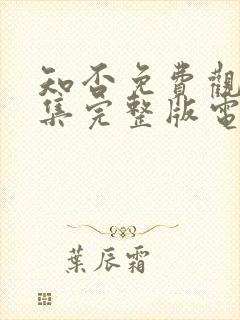 知否免費觀
集完整版電
葉辰霜